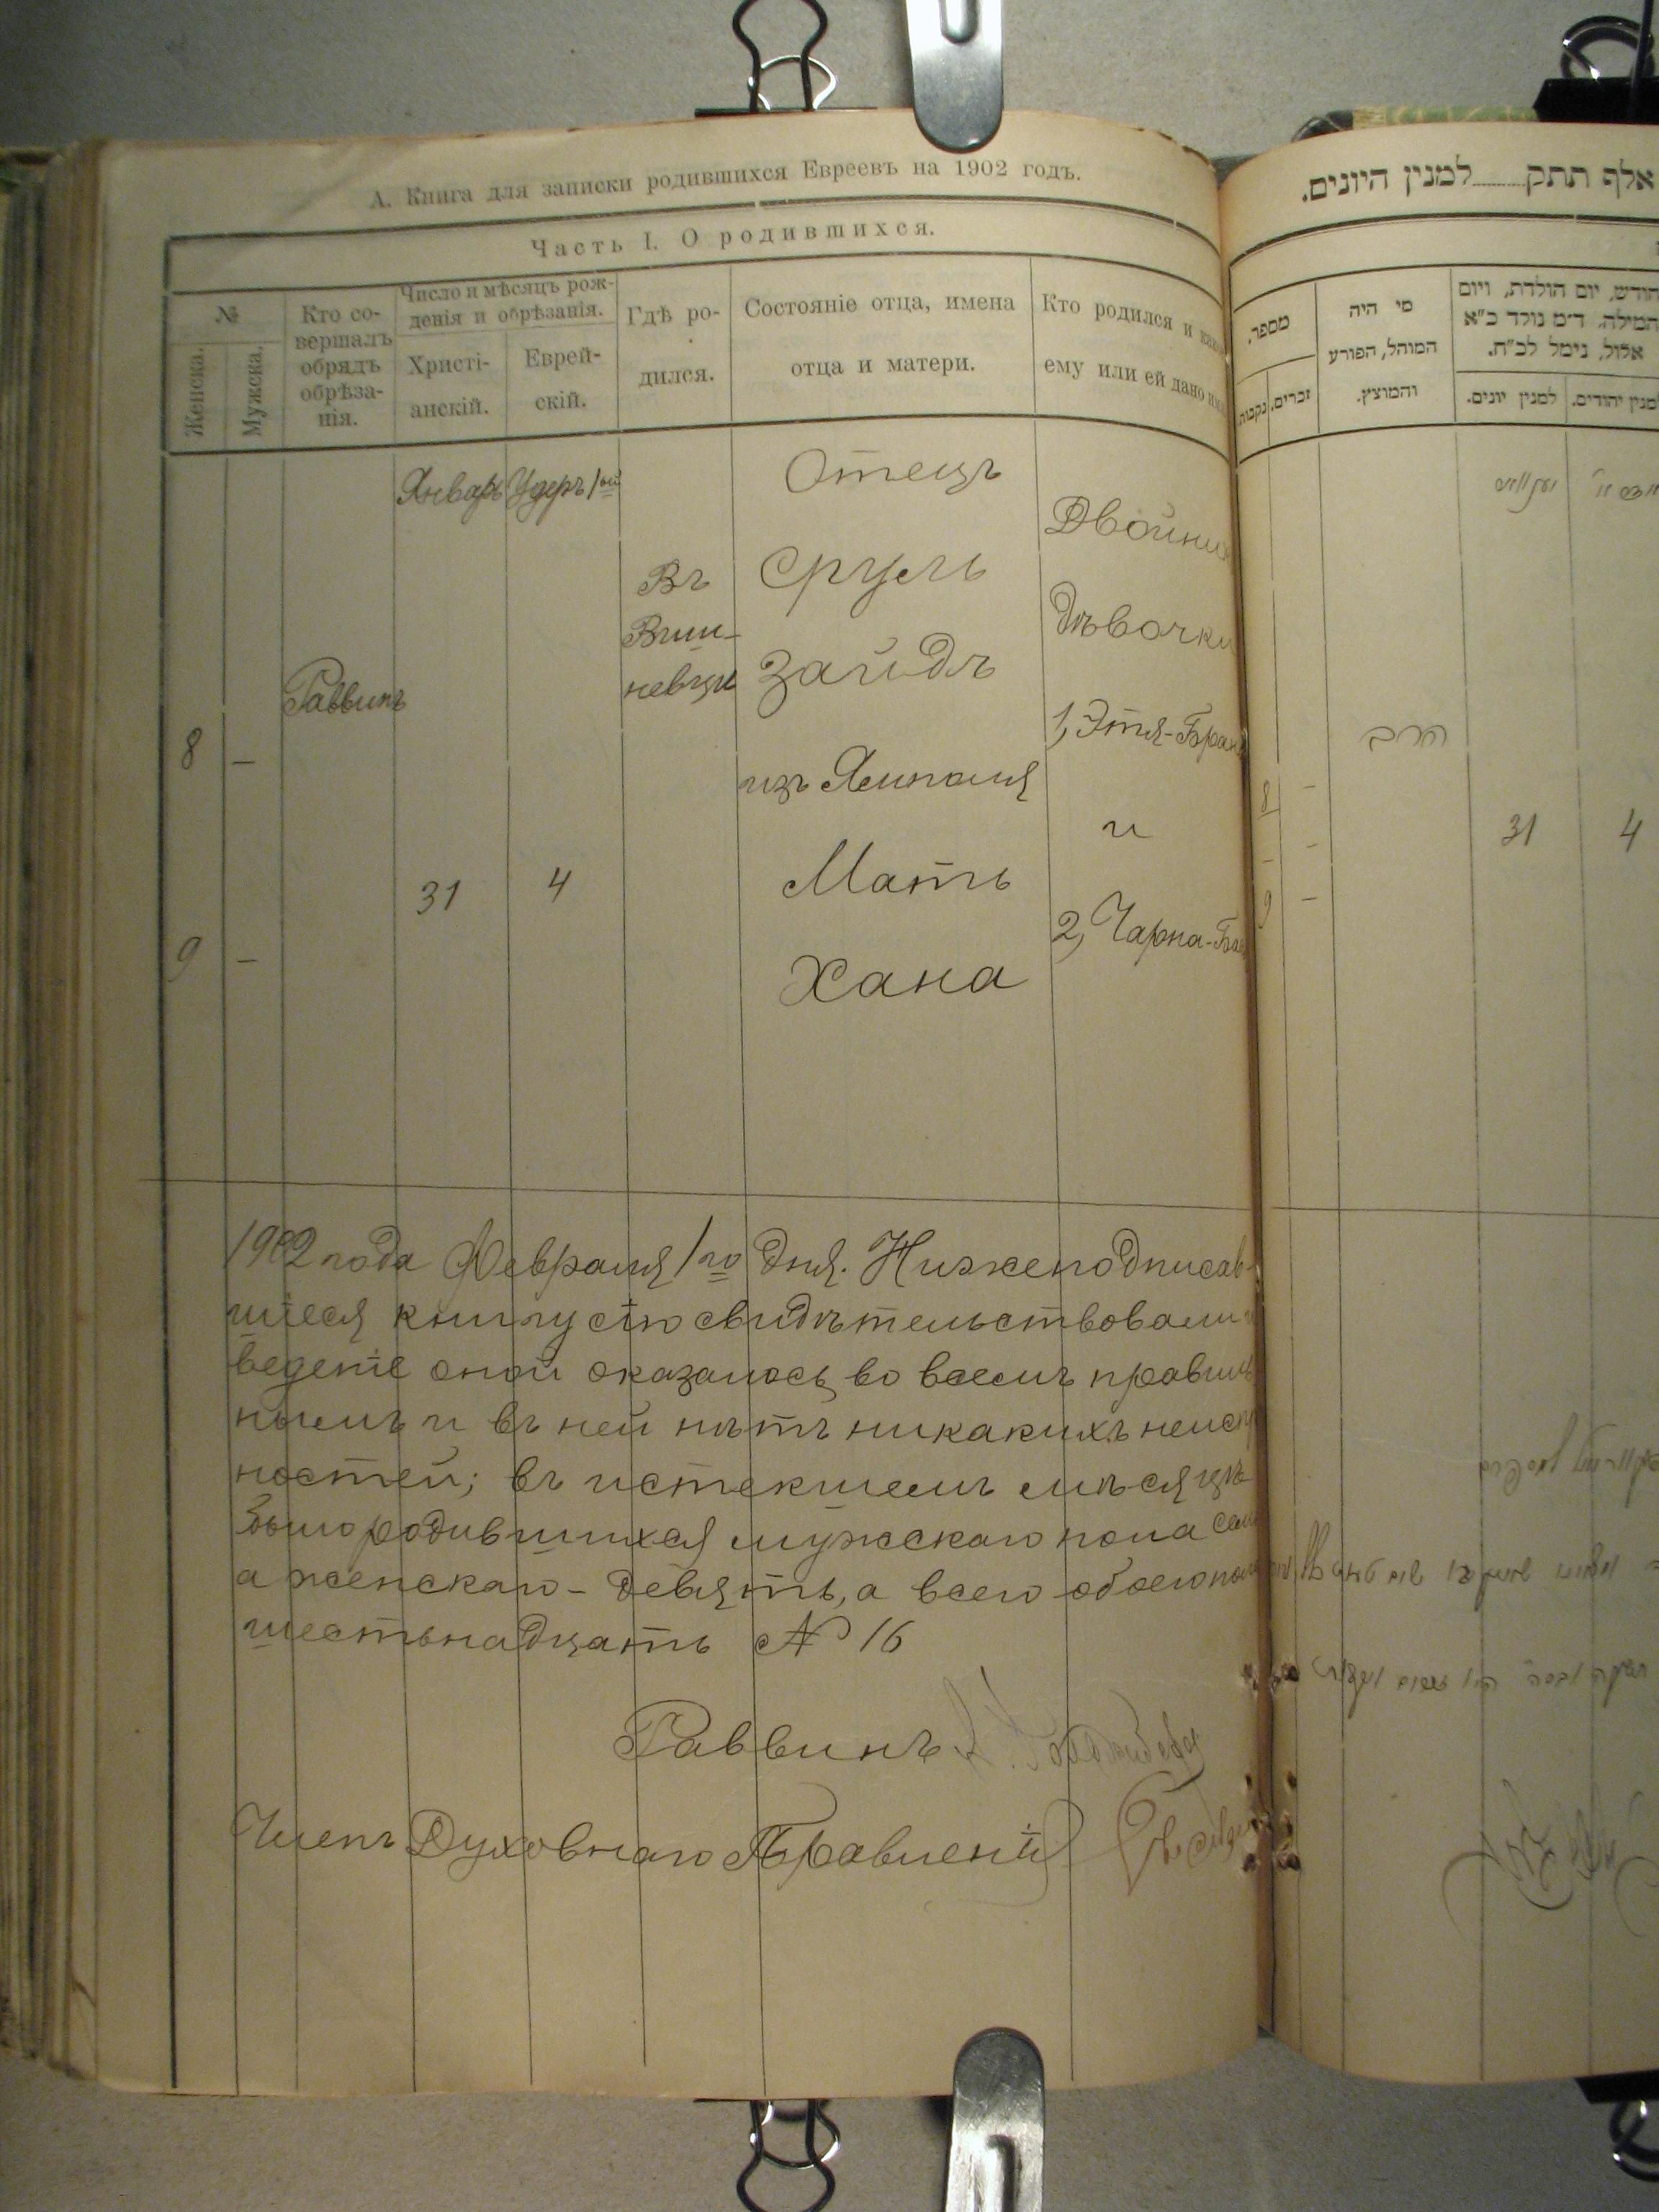 А. Книга для записки родившихся Евреевъ на 1902 годъ.
Часть I. О родившихся.
№
Женска.
Мужска.
Кто со-
вершалъ
обрядъ
обрѣза-
нія.
Число и мѣсяцъ рож-
денія и обрѣзанія.
Христі-
анскій.
Еврей-
скій.
Гдѣ ро-
дился.
Состояніе отца, имена
отца и матери.
Кто родился и
ему или ей дано
8
—
9
—
Раввинъ
Январь
31
Удеръ 1ой
4
Въ
Виш-
невцѣ
Отецъ
Сруль
Зайдъ
изъ Ямполя
Мать
Хана
Двойни
Дѣвочки
1, Этя-
и
2, Чарна-
1902 года Февраля 1го дня. Нижеподписав-
шіеся книгу сію свидѣтельствовали
веденіе оной оказалось во всемъ правиль
нымъ и въ ней нѣтъ никакихъ
ностей; въ истекшемъ мѣсяцѣ
было родившихся мужскаго пола
а женскаго - девять, а всего обоего
шестьнадцать № 16
Раввинъ
Членъ Духовнаго Правленія
אלף תתק למנין היונים.
מספר.
נקבות
זכרים.
מי היה
המוהל, הפורע
והמוצץ.
חודש, יום הולדת, ויום
המילה. ד״מ נולד כ״א
אלול, נימל לכ״ח.
למנין יונים.
למנין יהודים.
8
—
—
9
—
הרב
31
4